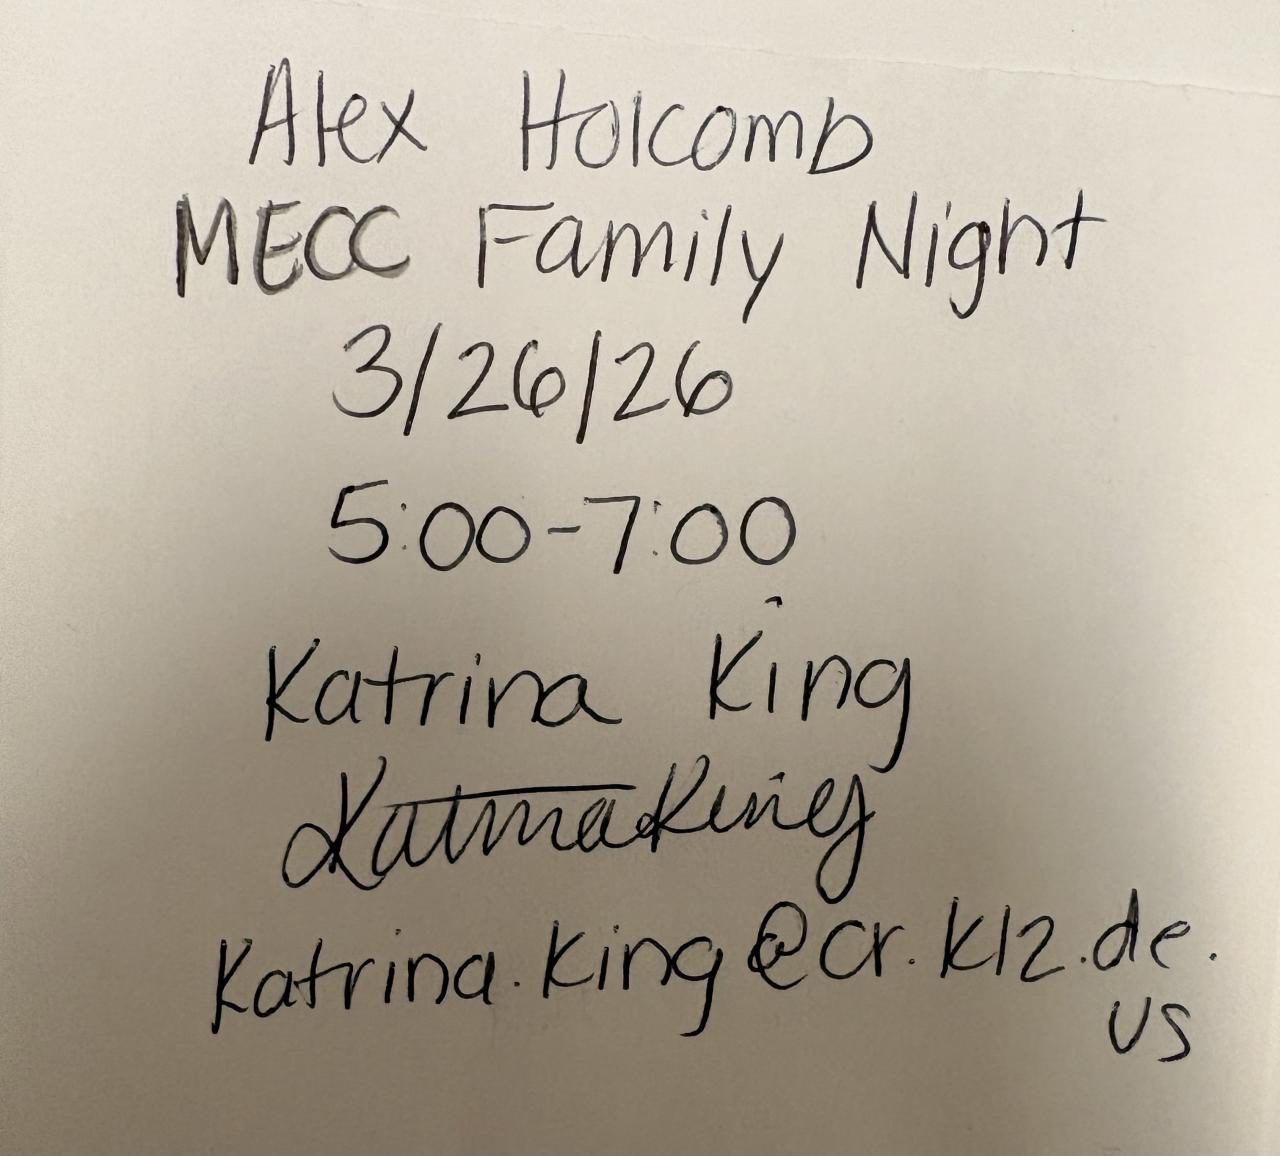 Alex Holcomb
MECC Family Night
3/26/26
5:00-7:00
Katrina King
Katrina King
Katrina.King@cr.k12.de.
us